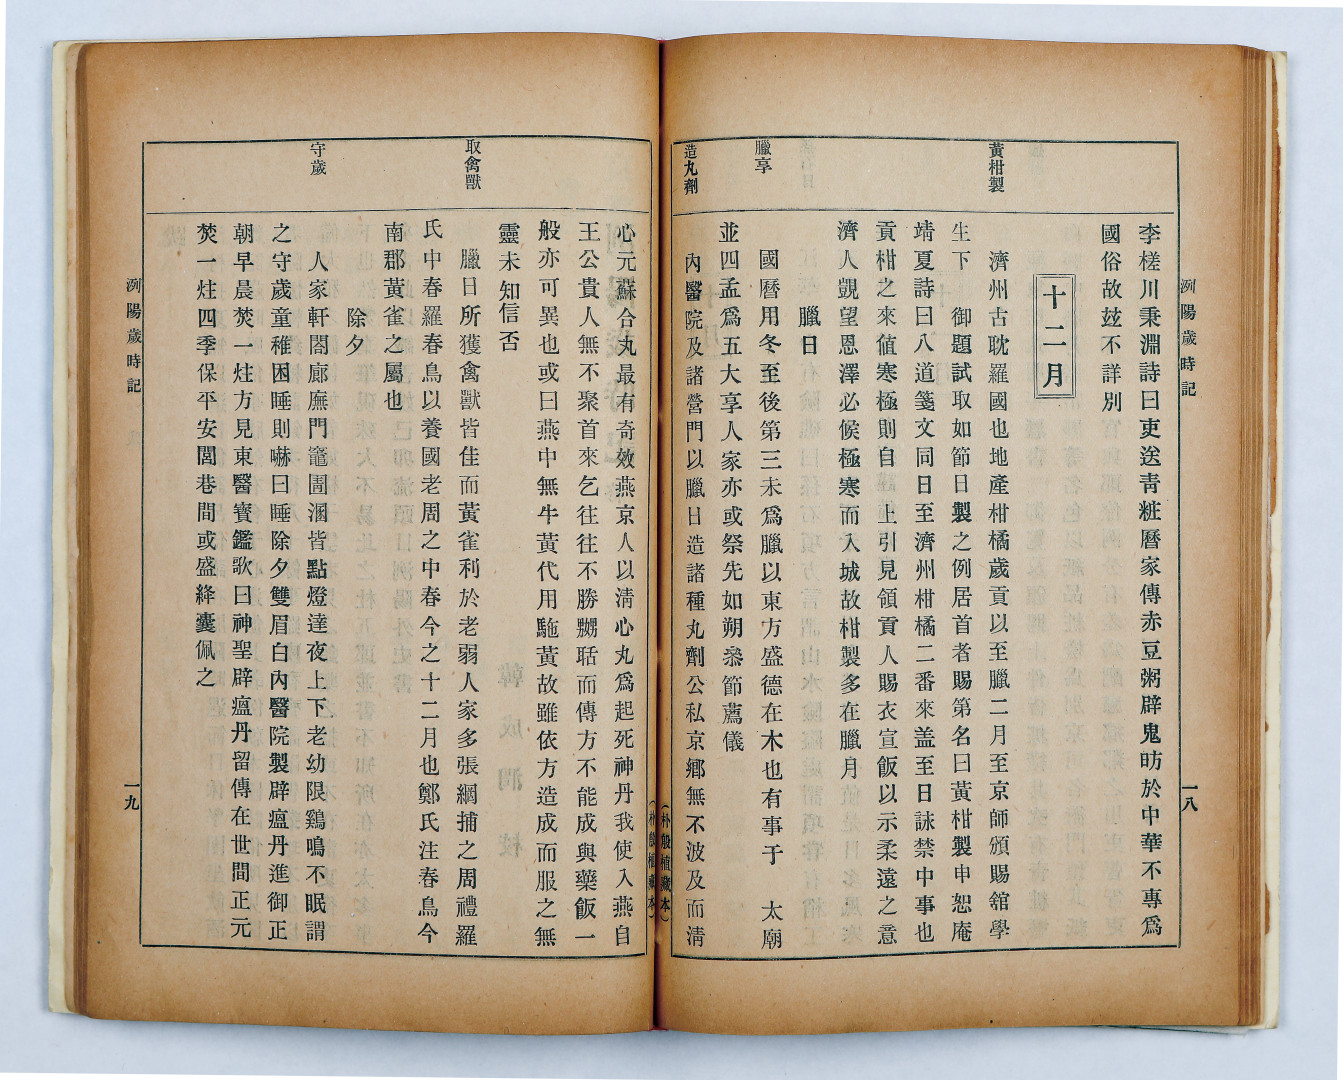 洌陽歲時記
一八
李槎川秉淵詩曰吏送靑粧曆家傳赤豆粥辟鬼昉於中華不專爲
國俗故玆不詳別
十二月
黃柑製
濟州古耽羅國也地產柑橘歲貢以至臘二月至京師頒賜舘學
生下 御題試取如節日製之例居首者賜第名曰黃柑製申恕庵
靖夏詩曰八道箋文同日至濟州柑橘二番來盖至日詠禁中事也
貢柑之來値寒極則自 上引見領貢人賜衣宣飯以示柔遠之意
濟人覬望恩澤必候極寒而入城故柑製多在臘月
臘日
臘享
國曆用冬至後第三未爲臘以東方盛德在木也有事于 太廟
並四孟爲五大享人家亦或祭先如朔叅節薦儀
造丸劑
內醫院及諸營門以臘日造諸種丸劑公私京鄕無不波及而淸
(朴殷植藏本)
心元蘇合丸最有奇效燕京人以淸心丸爲起死神丹我使入燕自
王公貴人無不聚首來乞往往不勝嬲聒而傳方不能成與藥飯一
般亦可異也或曰燕中無牛黃代用駞黃故雖依方造成而服之無
靈未知信否
取禽獸
臘日所獲禽獸皆佳而黃雀利於老弱人家多張網捕之周禮羅
氏中春羅春鳥以養國老周之中春今之十二月也鄭氏注春鳥今
南郡黃雀之屬也
除夕
守歲
人家軒閤廊廡門竈圊溷皆點燈達夜上下老幼限鷄鳴不眠謂
之守歲童稚困睡則嚇曰睡除夕雙眉白內醫院製辟瘟丹進御正
朝早晨焚一炷方見東醫寶鑑歌曰神聖辟瘟丹留傳在世間正元
焚一炷四季保平安閭巷間或盛絳囊佩之
洌陽歲時記
一九